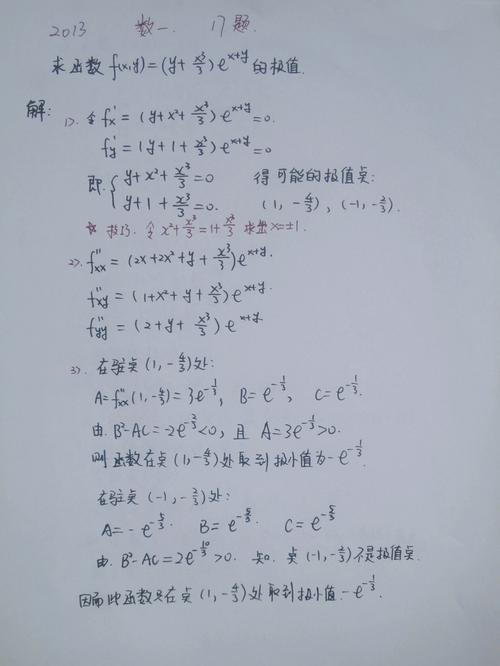 2013 数一. 17题.
求函数 f(x,y)=(y+x³/3)e^{x+y} 的极值.
解: 1). 令 f'x=(y+x²+x³/3)e^{x+y}=0.
f'y=(y+1+x³/3)e^{x+y}=0
即. { y+x²+x³/3=0 得可能的极值点:
y+1+x³/3=0. (1,-4/3), (-1,-2/3).
☆ 技巧: 令 x²+x³/3=1+x³/3 求出 x=±1.
2). f''xx=(2x+2x²+y+x³/3)e^{x+y}.
f''xy=(1+x²+y+x³/3)e^{x+y}.
f''yy=(2+y+x³/3)e^{x+y}.
3). 在驻点(1,-4/3)处:
A=f''xx(1,-4/3)=3e^{-1/3}, B=e^{-1/3}, C=e^{-1/3}.
由. B²-AC=-2e^{-2/3}<0, 且 A=3e^{-1/3}>0.
则函数在点(1,-4/3)处取到极小值为-e^{-1/3}.
在驻点(-1,-2/3)处:
A=-e^{-5/3}. B=e^{-5/3}. C=e^{-5/3}
由. B²-AC=2e^{-10/3}>0. 知. 点(-1,-2/3)不是极值点.
因而此函数只在点(1,-4/3)处取到极小值-e^{-1/3}.